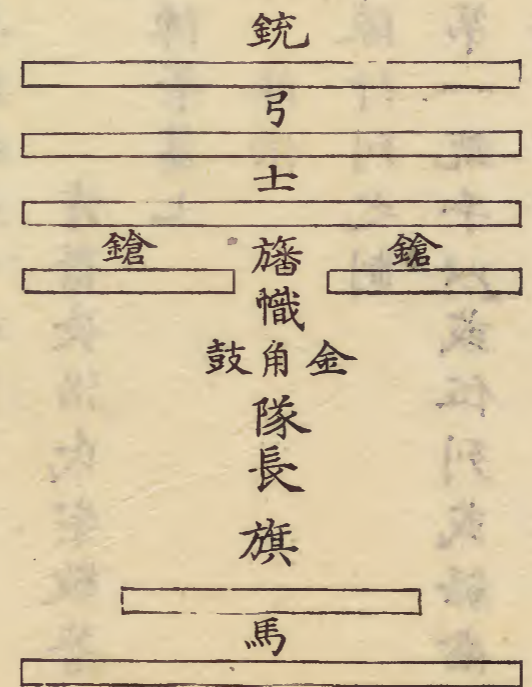 銃
弓
士
鎗 旛 鎗
幟
鼓角金
隊
長
旗
馬